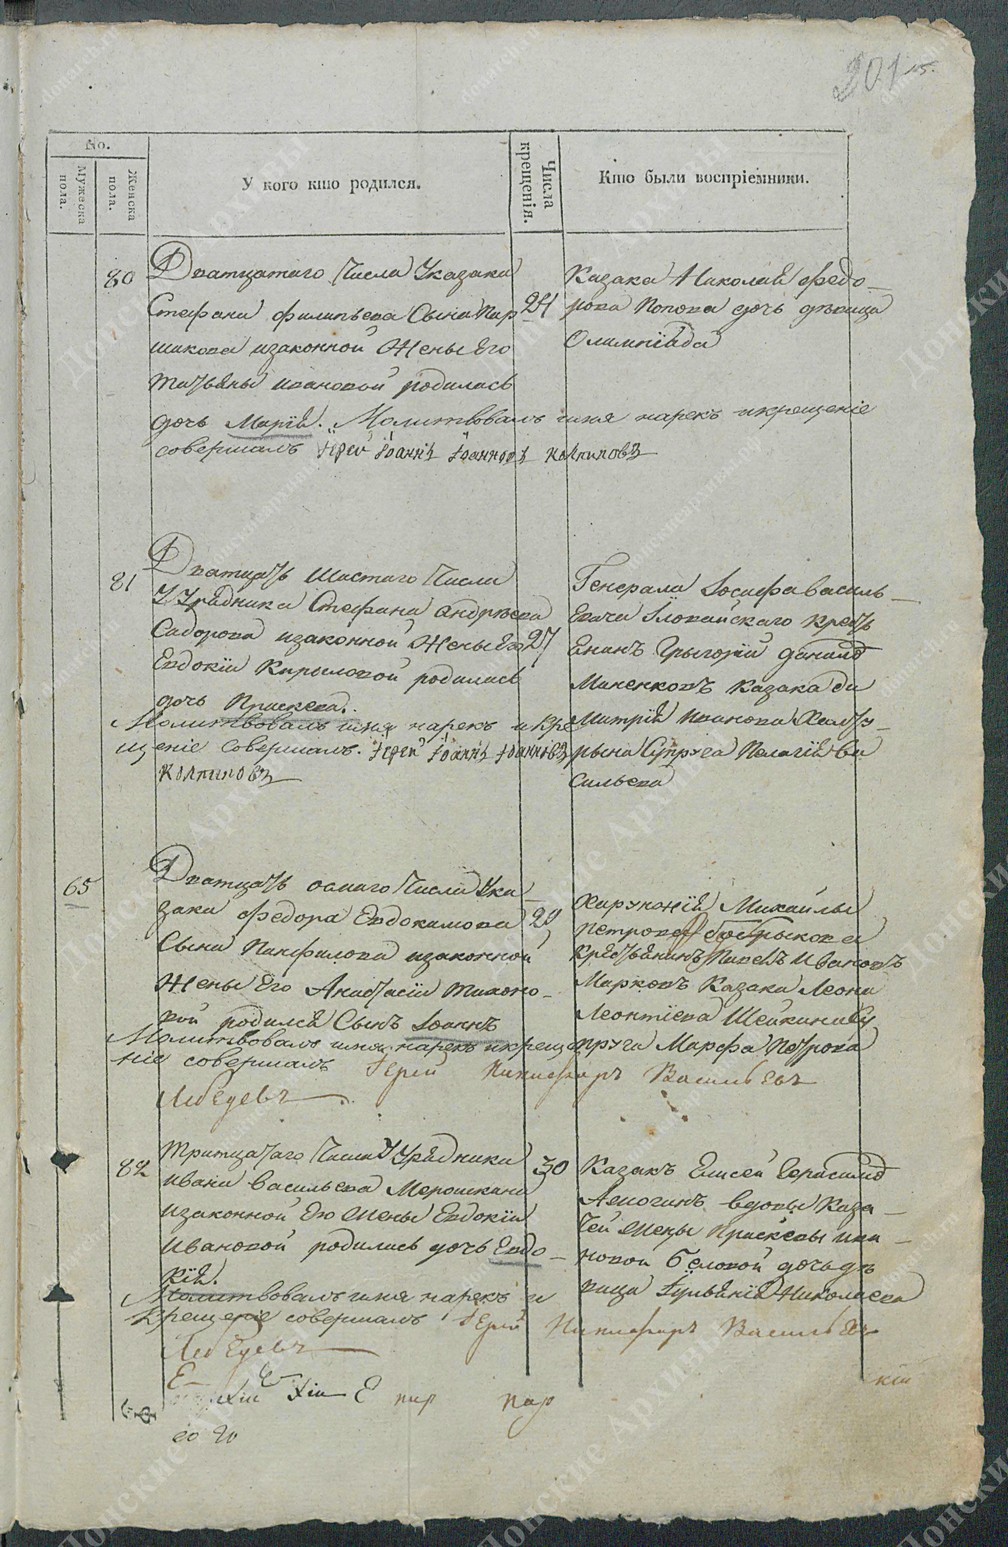 301
No.
Мужеска пола.
Женска пола.
У кого кто родился.
Числа крещенія.
Кто были воспріемники.
80
Дватцатаго Числа Указака
Стефана филипьева Сына Пар
шикова изаконной Жены Его
татьяны ивановой родилась
дочь Марія. Молитвовалъ имя нарекъ икрещеніе
совершалъ Іерей Іоаннъ Іоанновъ Колпиковъ
24
Казака Николая федо-
рова Попова дочь девица
Олимпіяда
81
Дватцать Шестаго Числа
У Урядника Стефана андреева
Сидорова изаконной Жены Его
Евдокіи Кириловой родилась
дочь Праскева.
Молитвовалъ имя нарекъ и кре
щеніе совершалъ. Іерей Іоаннъ Іоанновъ
Колпиковъ
27
Генерала Іосифа василь-
Евича Іловайскаго Кресть
Енинъ Григорій данилов
Миненковъ Казака ди
Митрія иванова
Супруга Пелагія ва
сильева
65
Дватцать осмаго Числа Ука
зака федора Евдокимова
Сына Панфилова изаконной
Жены Его Анастасіи тихоно-
вой родился Сынъ Іоаннъ
Молитвовалъ имя нарекъ икреще
ніе совершалъ Іерей Никифоръ Васильевъ
Лебедевъ
29
Харунжій Михайлы
Петрова Бобрыкова
Крестьянинъ Павелъ Ивановъ
Марковъ Казака Леона
Леонтіева Шейкина Су
пруга Марфа Петрова
82
тритцатаго Числа У Урядника
ивана васильева Мерошкина
изаконной Его Жены Евдокіи
ивановой родилась дочь Евдо-
кія.
Молитвовалъ имя нарекъ и
крещеніе совершалъ Іерей Никифоръ Васильевъ
Лебедевъ
30
Казакъ Елисей Герасимов
Алючинъ вдовы Каза-
чей Жены Праскевы ива-
новой Беловой дочь де
вица Іульянія Николаева
Е
хіи Е пар пар
кіи
ео го